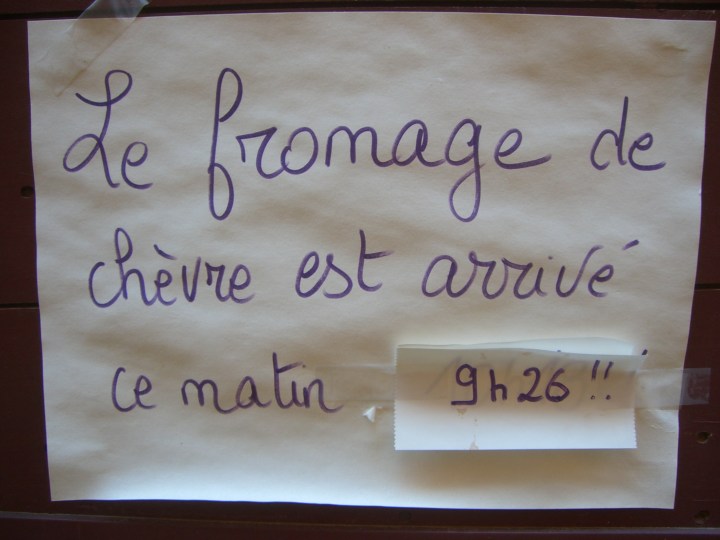 Le fromage de
chèvre est arrivé
ce matin 9h26 !!